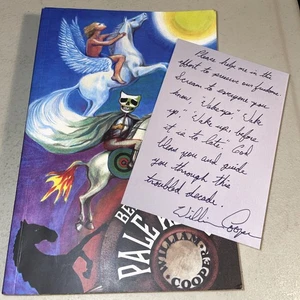 Please help me in the
effort to preserve our freedom.
Scream to everyone you
know, "Wake up" "Wake
up," "Wake up, before
it is to late" God
bless you and guide
you through this
troubled decade.
William Cooper
BE
PALE
WILLIAM
COO